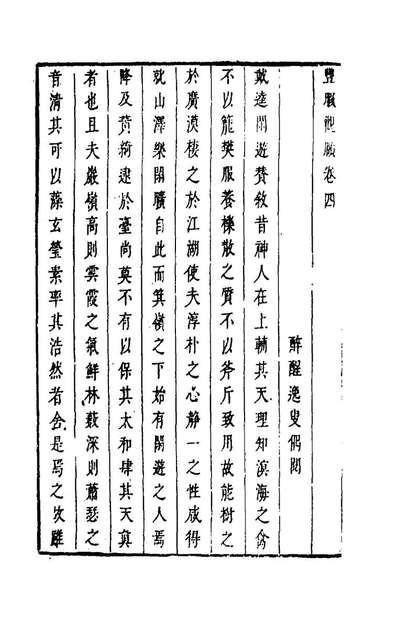 豐暇觀頤卷四
醉醒逸叟偶閱
戴逵閒遊贊敘昔神人在上輔其天理知溟海之禽
不以籠樊服養櫟散之質不以斧斤致用故能樹之
於廣漠棲之於江湖使夫淳朴之心靜一之性咸得
就山澤樂閒曠自此而箕嶺之下始有閒遊之人焉
降及黃綺逮於臺尚莫不有以保其太和肆其天真
者也且夫巖嶺高則雲霞之氣鮮林藪深則蕭瑟之
音清其可以藻玄瑩素率其浩然者舍是焉之攷雖